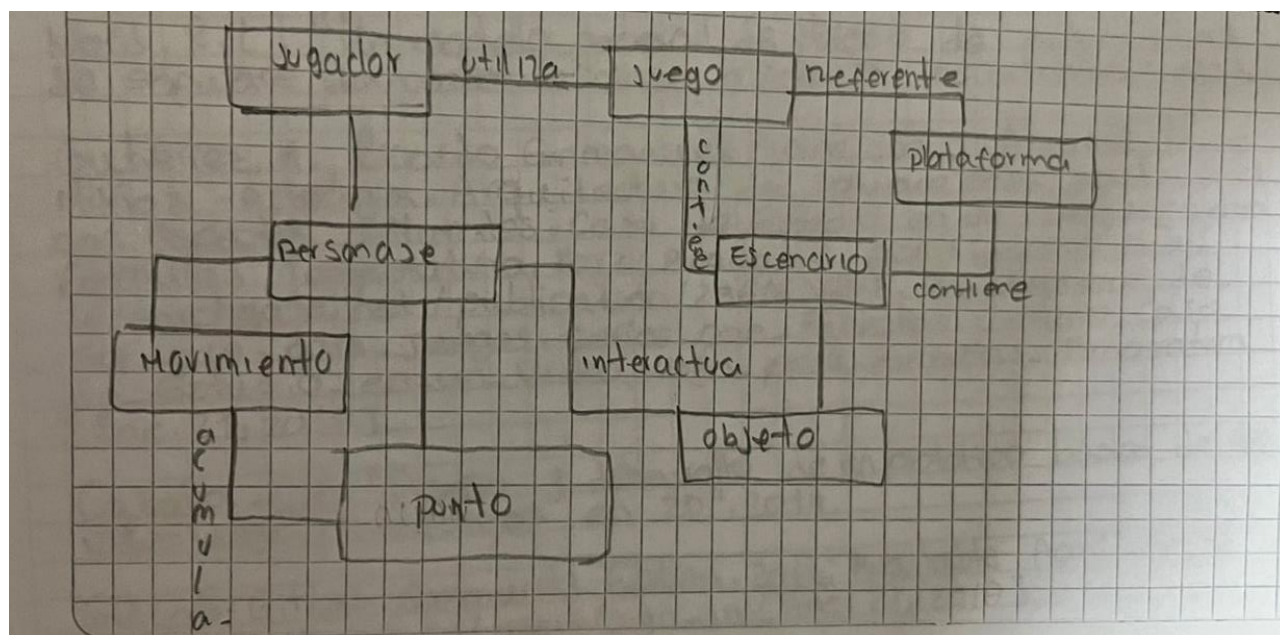 Jugador
utiliza
Juego
referente
plataforma
contiene
personaje
Escenario
contiene
Movimiento
interactua
objeto
acumula
punto